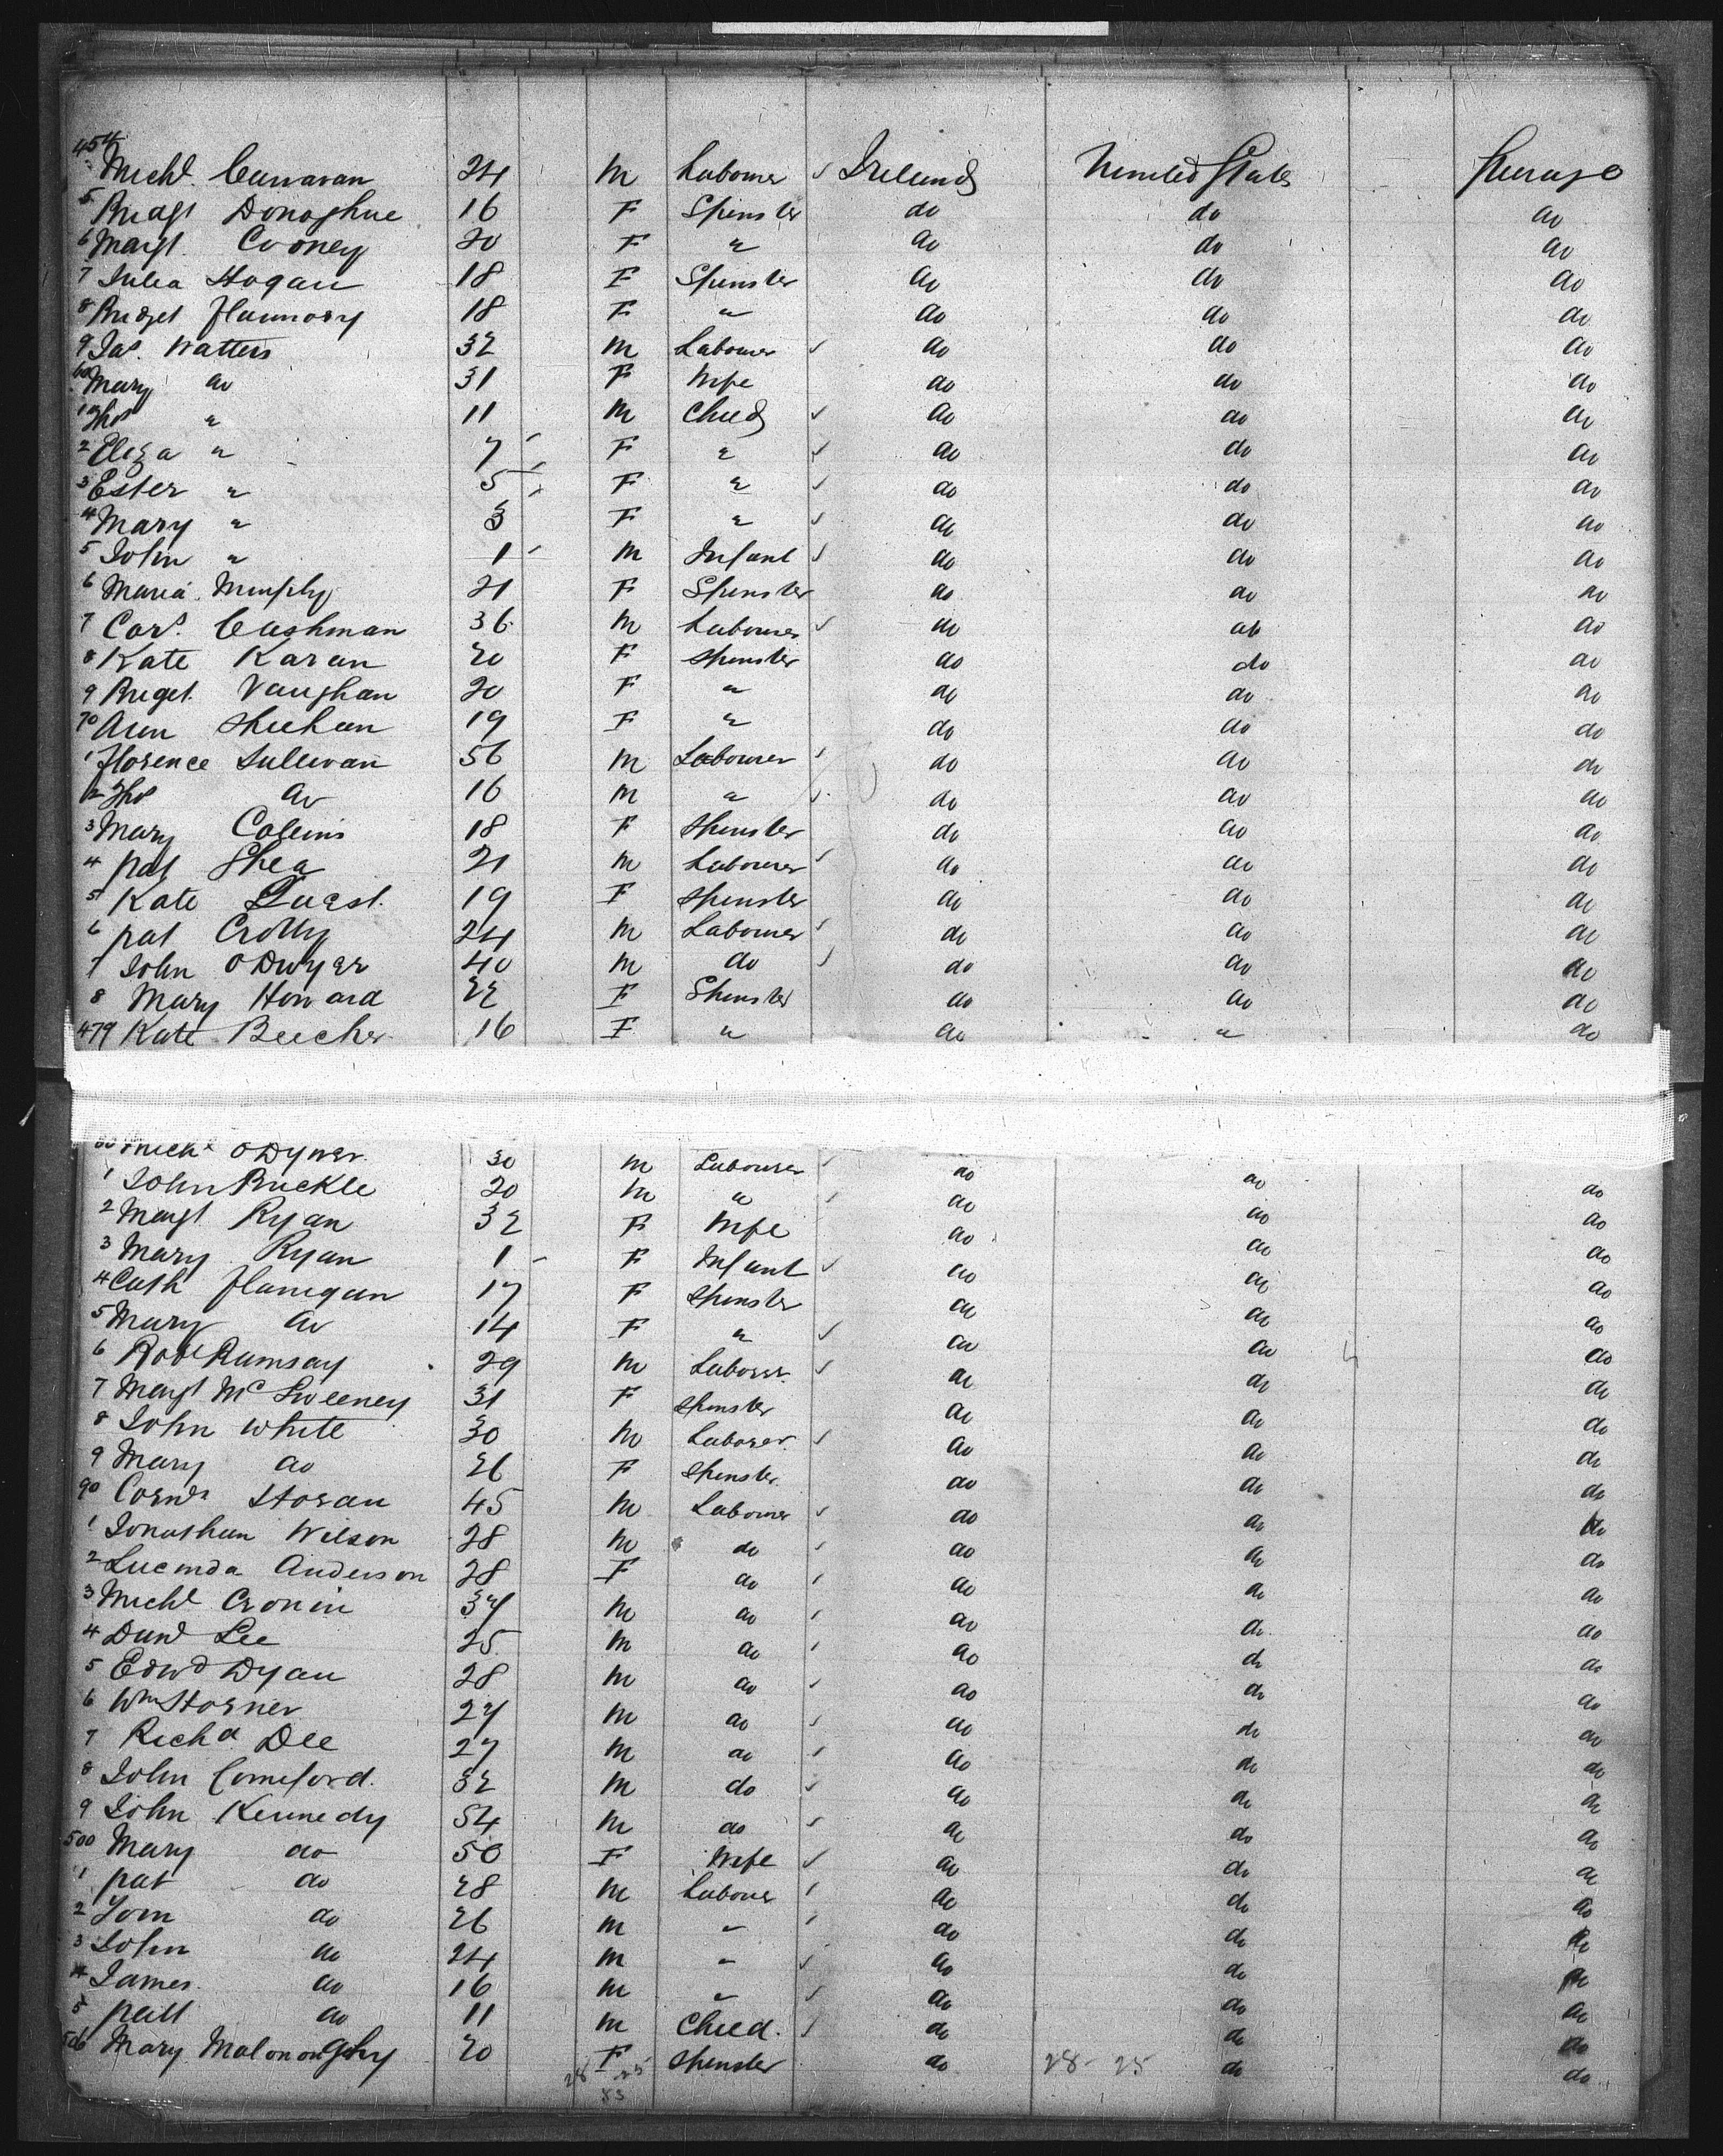 454 Michl. Canavan 24 M Labourer ✓ Ireland United States Steerage
5 Bridgt Donoghue 16 F Spinster do do do
6 Margt. Cooney 20 F " do do do
7 Julia Hogan 18 F Spinster do do do
8 Bridget Flannery 18 F " do do do
9 Jas. Watters 32 M Labourer ✓ do do do
60 Mary do 31 F Wife do do do
1 Thos " 11 M Child ✓ do do do
2 Eliza " 7 F " ✓ do do do
3 Ester " 5 F " ✓ do do do
4 Mary " 3 F " ✓ do do do
5 John " 1 M Infant ✓ do do do
6 Maria Murphy 21 F Spinster do do do
7 Cors. Cushman 36 M Labourer ✓ do do do
8 Kate Karan 20 F Spinster do do do
9 Briget Vaughan 20 F " do do do
70 Ann Sheehan 19 F " do do do
1 Florence Sullivan 56 M Labourer ✓ do do do
2 Thos do 16 M " ✓ do do do
3 Mary Collins 18 F Spinster do do do
4 Pat Shea 21 M Labourer ✓ do do do
5 Kate 19 F Spinster do do do
6 Pat Crotty 24 M Labourer ✓ do do do
7 John ODwyer 40 M do ✓ do do do
8 Mary Howard 22 F Spinster do do do
479 Kate Beecher 16 F " do " do
80 Michl ODywer 30 M Labourer ✓ do do do
1 John Buckle 20 M " ✓ do do do
2 Margt Ryan 32 F Wife do do do
3 Mary Ryan 1 F Infant ✓ do do do
4 Cath Flanigan 17 F Spinster do do do
5 Mary do 14 F " ✓ do do do
6 Robt Ramsay 29 M Laborer ✓ do do do
7 Margt McSweeney 31 F Spinster do do do
8 John White 30 M Laborer ✓ do do do
9 Mary do 26 F Spinster do do do
90 Corns Horan 45 M Labourer ✓ do do do
1 Jonathan Wilson 28 M do ✓ do do do
2 Lucinda Anderson 28 F do ✓ do do do
3 Michl Cronin 37 M do ✓ do do do
4 Danl Lee 25 M do ✓ do do do
5 Edwd Dyan 28 M do ✓ do do do
6 Wm Horner 27 M do ✓ do do do
7 Richd Dee 27 M do ✓ do do do
8 John Comeford 32 M do ✓ do do do
9 John Kennedy 54 M do ✓ do do do
500 Mary do 50 F Wife ✓ do do do
1 Pat do 28 M Labourer ✓ do do do
2 Tom do 26 M " ✓ do do do
3 John do 24 M " ✓ do do do
4 James do 16 M " ✓ do do do
5 do 11 M Child ✓ do do do
506 Mary 20 F Spinster do do do
28 25 28 - 25